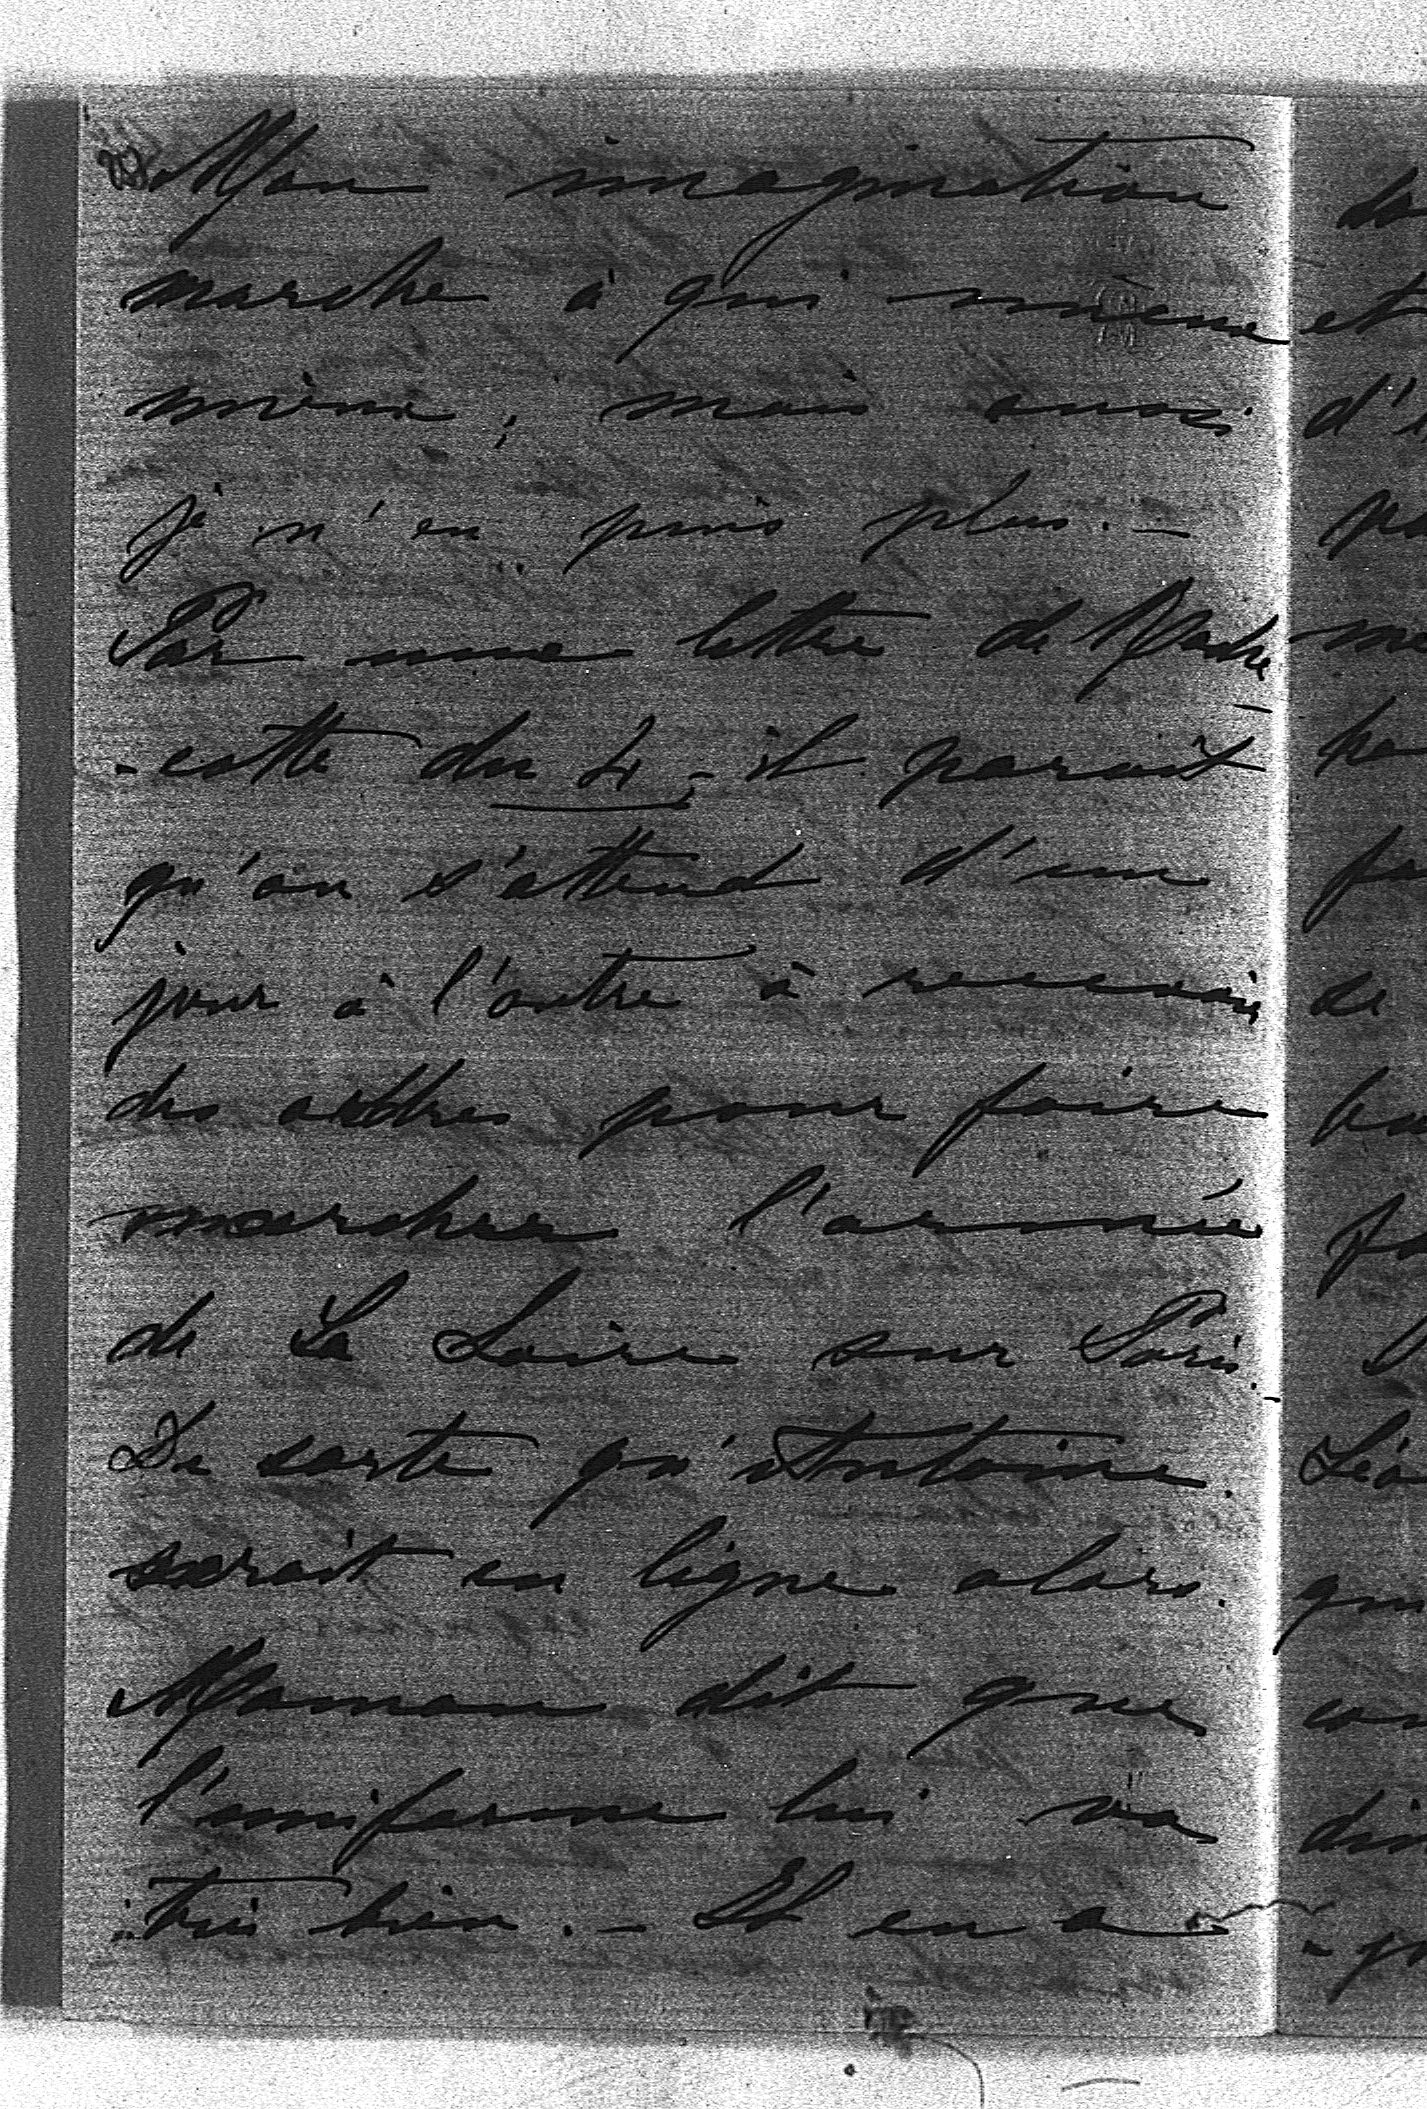 Mon imagination
marche à qui mieux
mieux, mais aussi
je n'en puis plus. —
Par une lettre de
du 4, il paraît
qu'on s'attend d'un
jour à l'autre à recevoir
des ordres pour faire
marcher l'armée
de La Loire sur Paris. -
De sorte qu'Antoine
serait en ligne alors.
Maman dit que
l'uniforme lui va
très bien. — Il en a